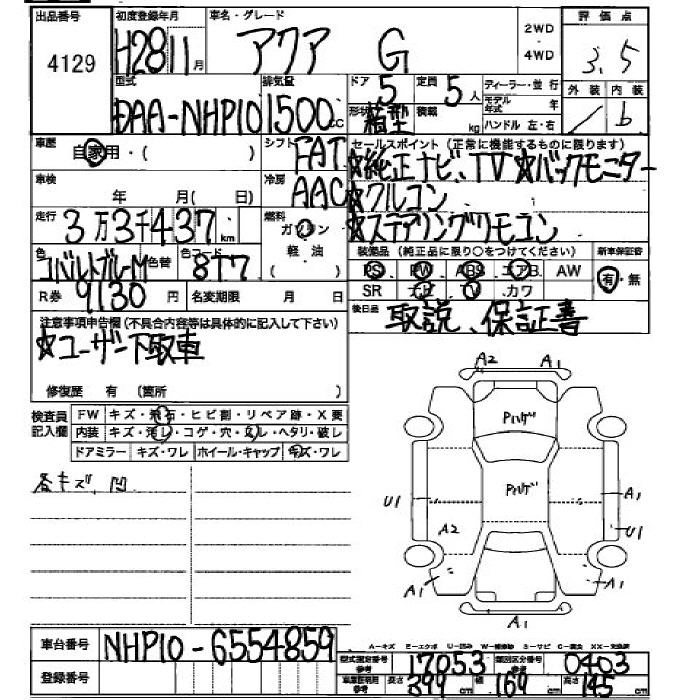 出品番号 初度登録年月 車名・グレード 2WD・4WD 評価点
4129 H28 11月 アクア G 3.5
型式 排気量 ドア 5 定員 5人 ディーラー・並行 外装 内装
DAA-NHP10 1500cc 形状 箱型 積載 kg モデル年式 年 ハンドル 左・右 / b
車歴 自家用・( ) シフト FAT セールスポイント (正常に機能するものに限ります)
☆純正ナビ、TV ☆バックモニター
車検 年 月( 日) 冷房 AAC ☆クルコン
走行 3万3千437km 燃料 ガソリン 軽油 ☆ステアリングリモコン
色 コバルトブルーM 色替 色コード 8T7 装備品 (純正品に限り○をつけてください) 新車保証書
PS PW ABS エアB AW 有・無
R券 9130円 名変期限 月 日 SR ナビ TV カワ
注意事項申告欄 (不具合内容等は具体的に記入して下さい) 後日品 取説、保証書
☆ユーザー下取車
修復歴 有 (箇所 )
検査員記入欄 FW キズ・飛石・ヒビ割・リペア跡・X要
内装 キズ・汚レ・コゲ・穴・スレ・ヘタリ・破レ
ドアミラー キズ・ワレ ホイール・キャップ キズ・ワレ
各キズ、凹
A2 A1
Pハゲ
Pハゲ
U1 A1
A2 U1
A1 A1
A1
A-キズ E-エクボ U-凹み W-補修跡 S-サビ C-腐食 XX-交換済
車台番号 NHP10-6554859
型式指定番号 参考 17053 類別区分番号 参考 0403
登録番号 車庫証明用 参考 長さ 399cm 幅 169cm 高さ 145cm